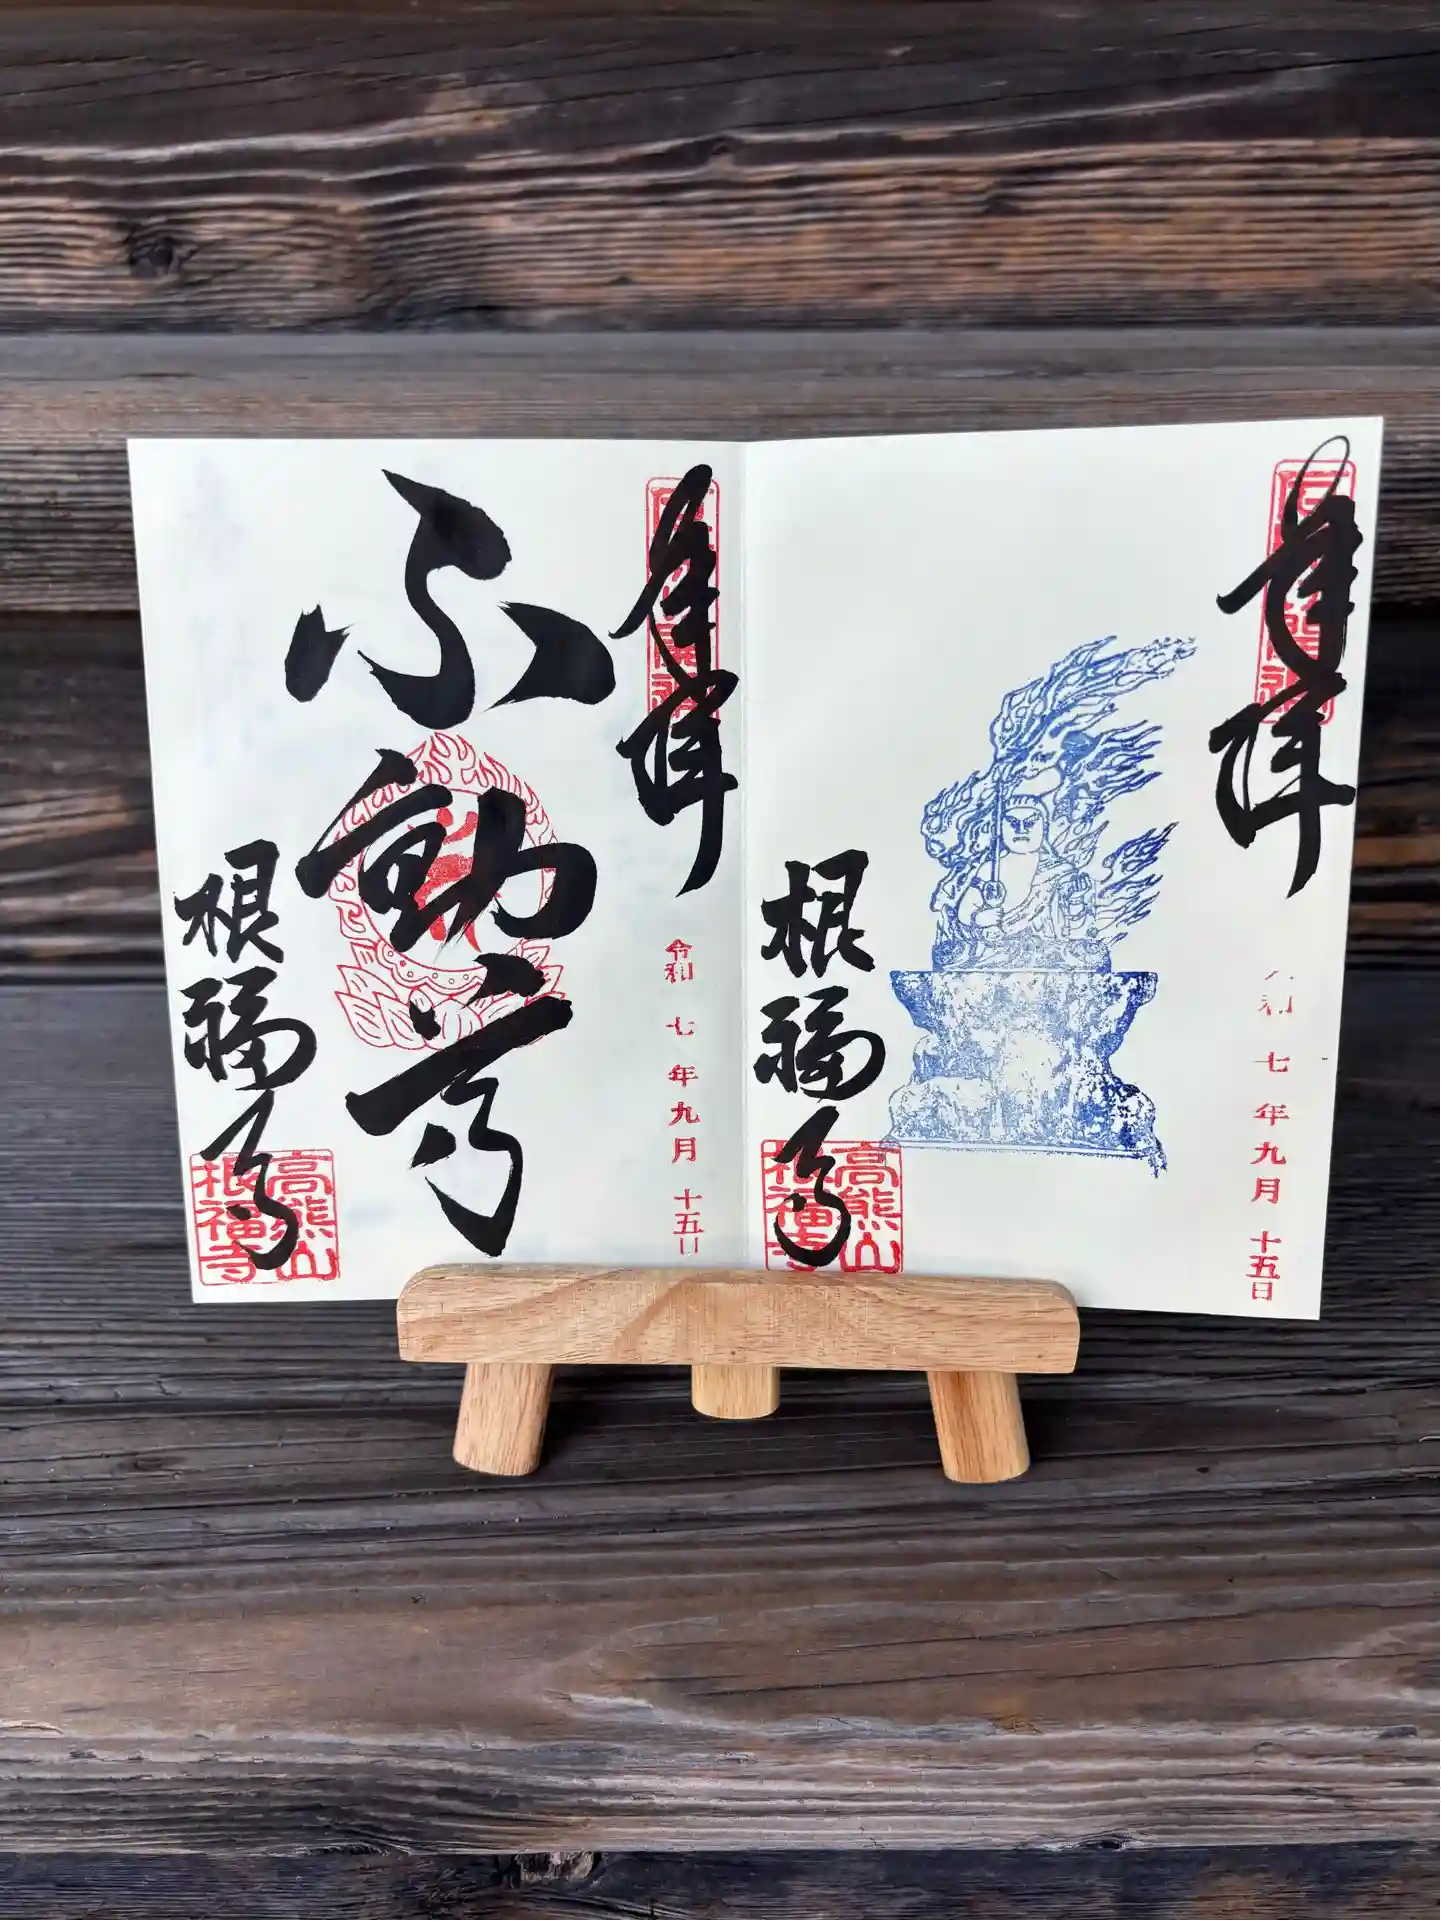 奉拝
令和七年九月十五日
不動尊
根福寺
高熊山
根福寺
奉拝
七年九月十五日
根福寺
高熊山
根福寺